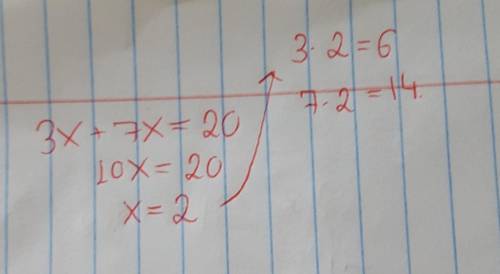 3x + 7x = 20
10x = 20
x = 2
3 · 2 = 6
7 · 2 = 14.